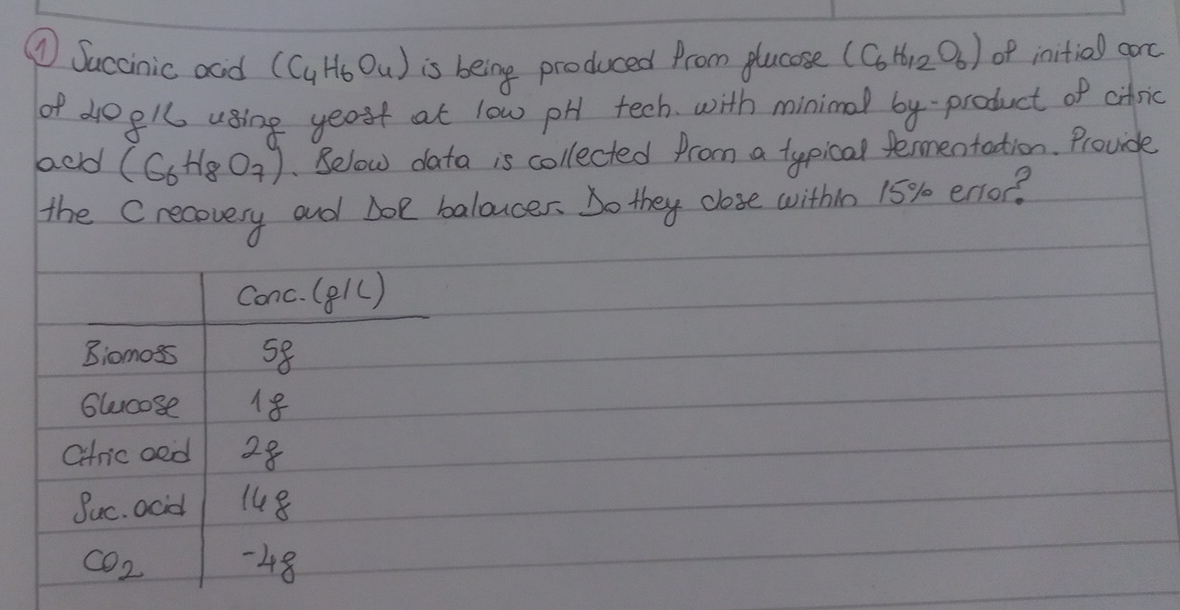 ① Succinic acid (C4H6O4) is being produced from glucose (C6H12O6) of initial conc
of 40 g/L using yeast at low pH tech. with minimal by-product of citric
acid (C6H8O7). Below data is collected from a typical fermentation. Provide
the C recovery and DoR balances. Do they close within 15% error?
Conc. (g/L)
Biomass 5g
Glucose 1g
Citric acid 2g
Suc. acid 14g
CO2 -4g